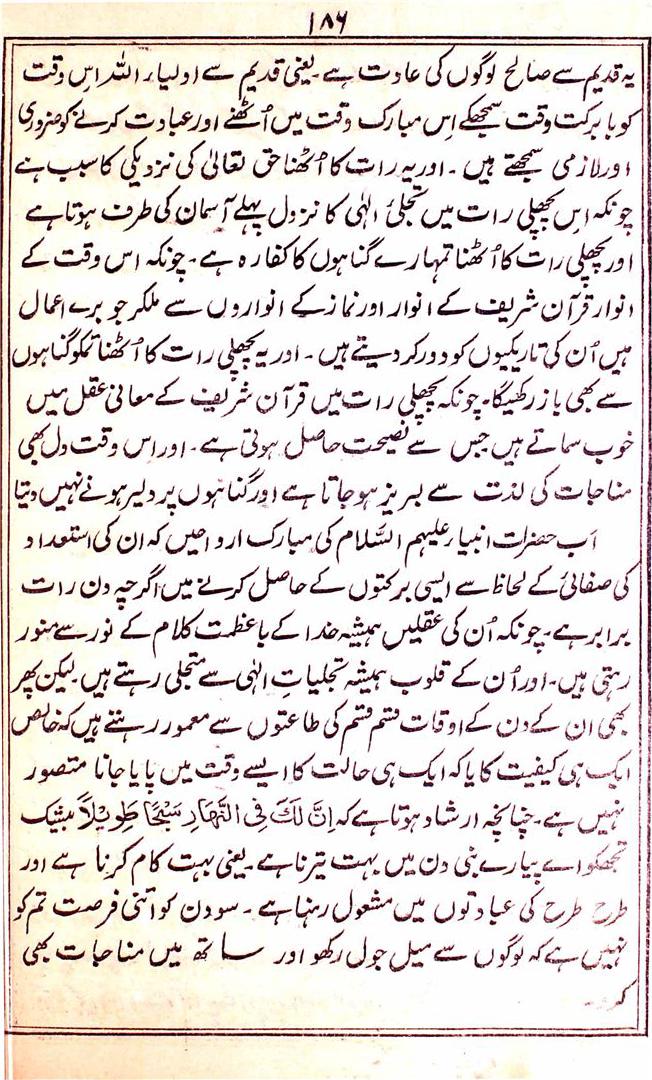 ۱۸۶
یہ قدیم سے صالح لوگوں کی عادت ہے۔ یعنی قدیم سے اولیاء اللہ اس وقت
کو بابرکت وقت سمجھکے اس مبارک وقت میں اُٹھنے اور عبادت کرنے کو ضروری
اور لازمی سمجھتے ہیں۔ اور یہ رات کا اُٹھنا حق تعالیٰ کی نزدیکی کا سبب ہے
چونکہ اس پچھلی رات میں تجلیٔ الٰہی کا نزول پہلے آسمان کی طرف ہوتا ہے
اور پچھلی رات کا اُٹھنا تمہارے گناہوں کا کفارہ ہے۔ چونکہ اس وقت کے
انوار قرآن شریف کے انوار اور نماز کے انواروں سے ملکر جو برے اعمال
ہیں اُن کی تاریکیوں کو دور کر دیتے ہیں۔ اور یہ پچھلی رات کا اُٹھنا تمکو گناہوں
سے بھی باز رکھیگا۔ چونکہ پچھلی رات میں قرآن شریف کے معانی عقل میں
خوب سماتے ہیں جس سے نصیحت حاصل ہوتی ہے۔ اور اس وقت دل بھی
مناجات کی لذت سے لبریز ہو جاتا ہے اور گناہوں پر دلیر ہونے نہیں دیتا
اَب حضرات انبیاء علیہم السَّلام کی مبارک ارواحیں کہ ان کی استعداد
کی صفائی کے لحاظ سے ایسی برکتوں کے حاصل کرنے میں اگرچہ دن رات
برابر ہے۔ چونکہ اُن کی عقلیں ہمیشہ خدا کے باعظمت کلام کے نور سے منور
رہتی ہیں۔ اور اُن کے قلوب ہمیشہ تجلیاتِ الٰہی سے متجلی رہتے ہیں۔ لیکن پھر
بھی ان کے دن کے اوقات قسم قسم کی طاعتوں سے معمور رہتے ہیں کہ خالص
ایک ہی کیفیت کا یا کہ ایک ہی حالت کا ایسے وقت میں پایا جانا متصور
نہیں ہے۔ چنانچہ ارشاد ہوتا ہے کہ اِنَّ لَكَ فِی النَّهَارِ سَبْحًا طَوِیْلًا بیشک
تجھکو اے پیارے نبی دن میں بہت تیرنا ہے۔ یعنی بہت کام کرنا ہے اور
طرح طرح کی عبادتوں میں مشغول رہنا ہے۔ سو دن کو اتنی فرصت تم کو
نہیں ہے کہ لوگوں سے میل جول رکھو اور ساتھ میں مناجات بھی
کرو۔